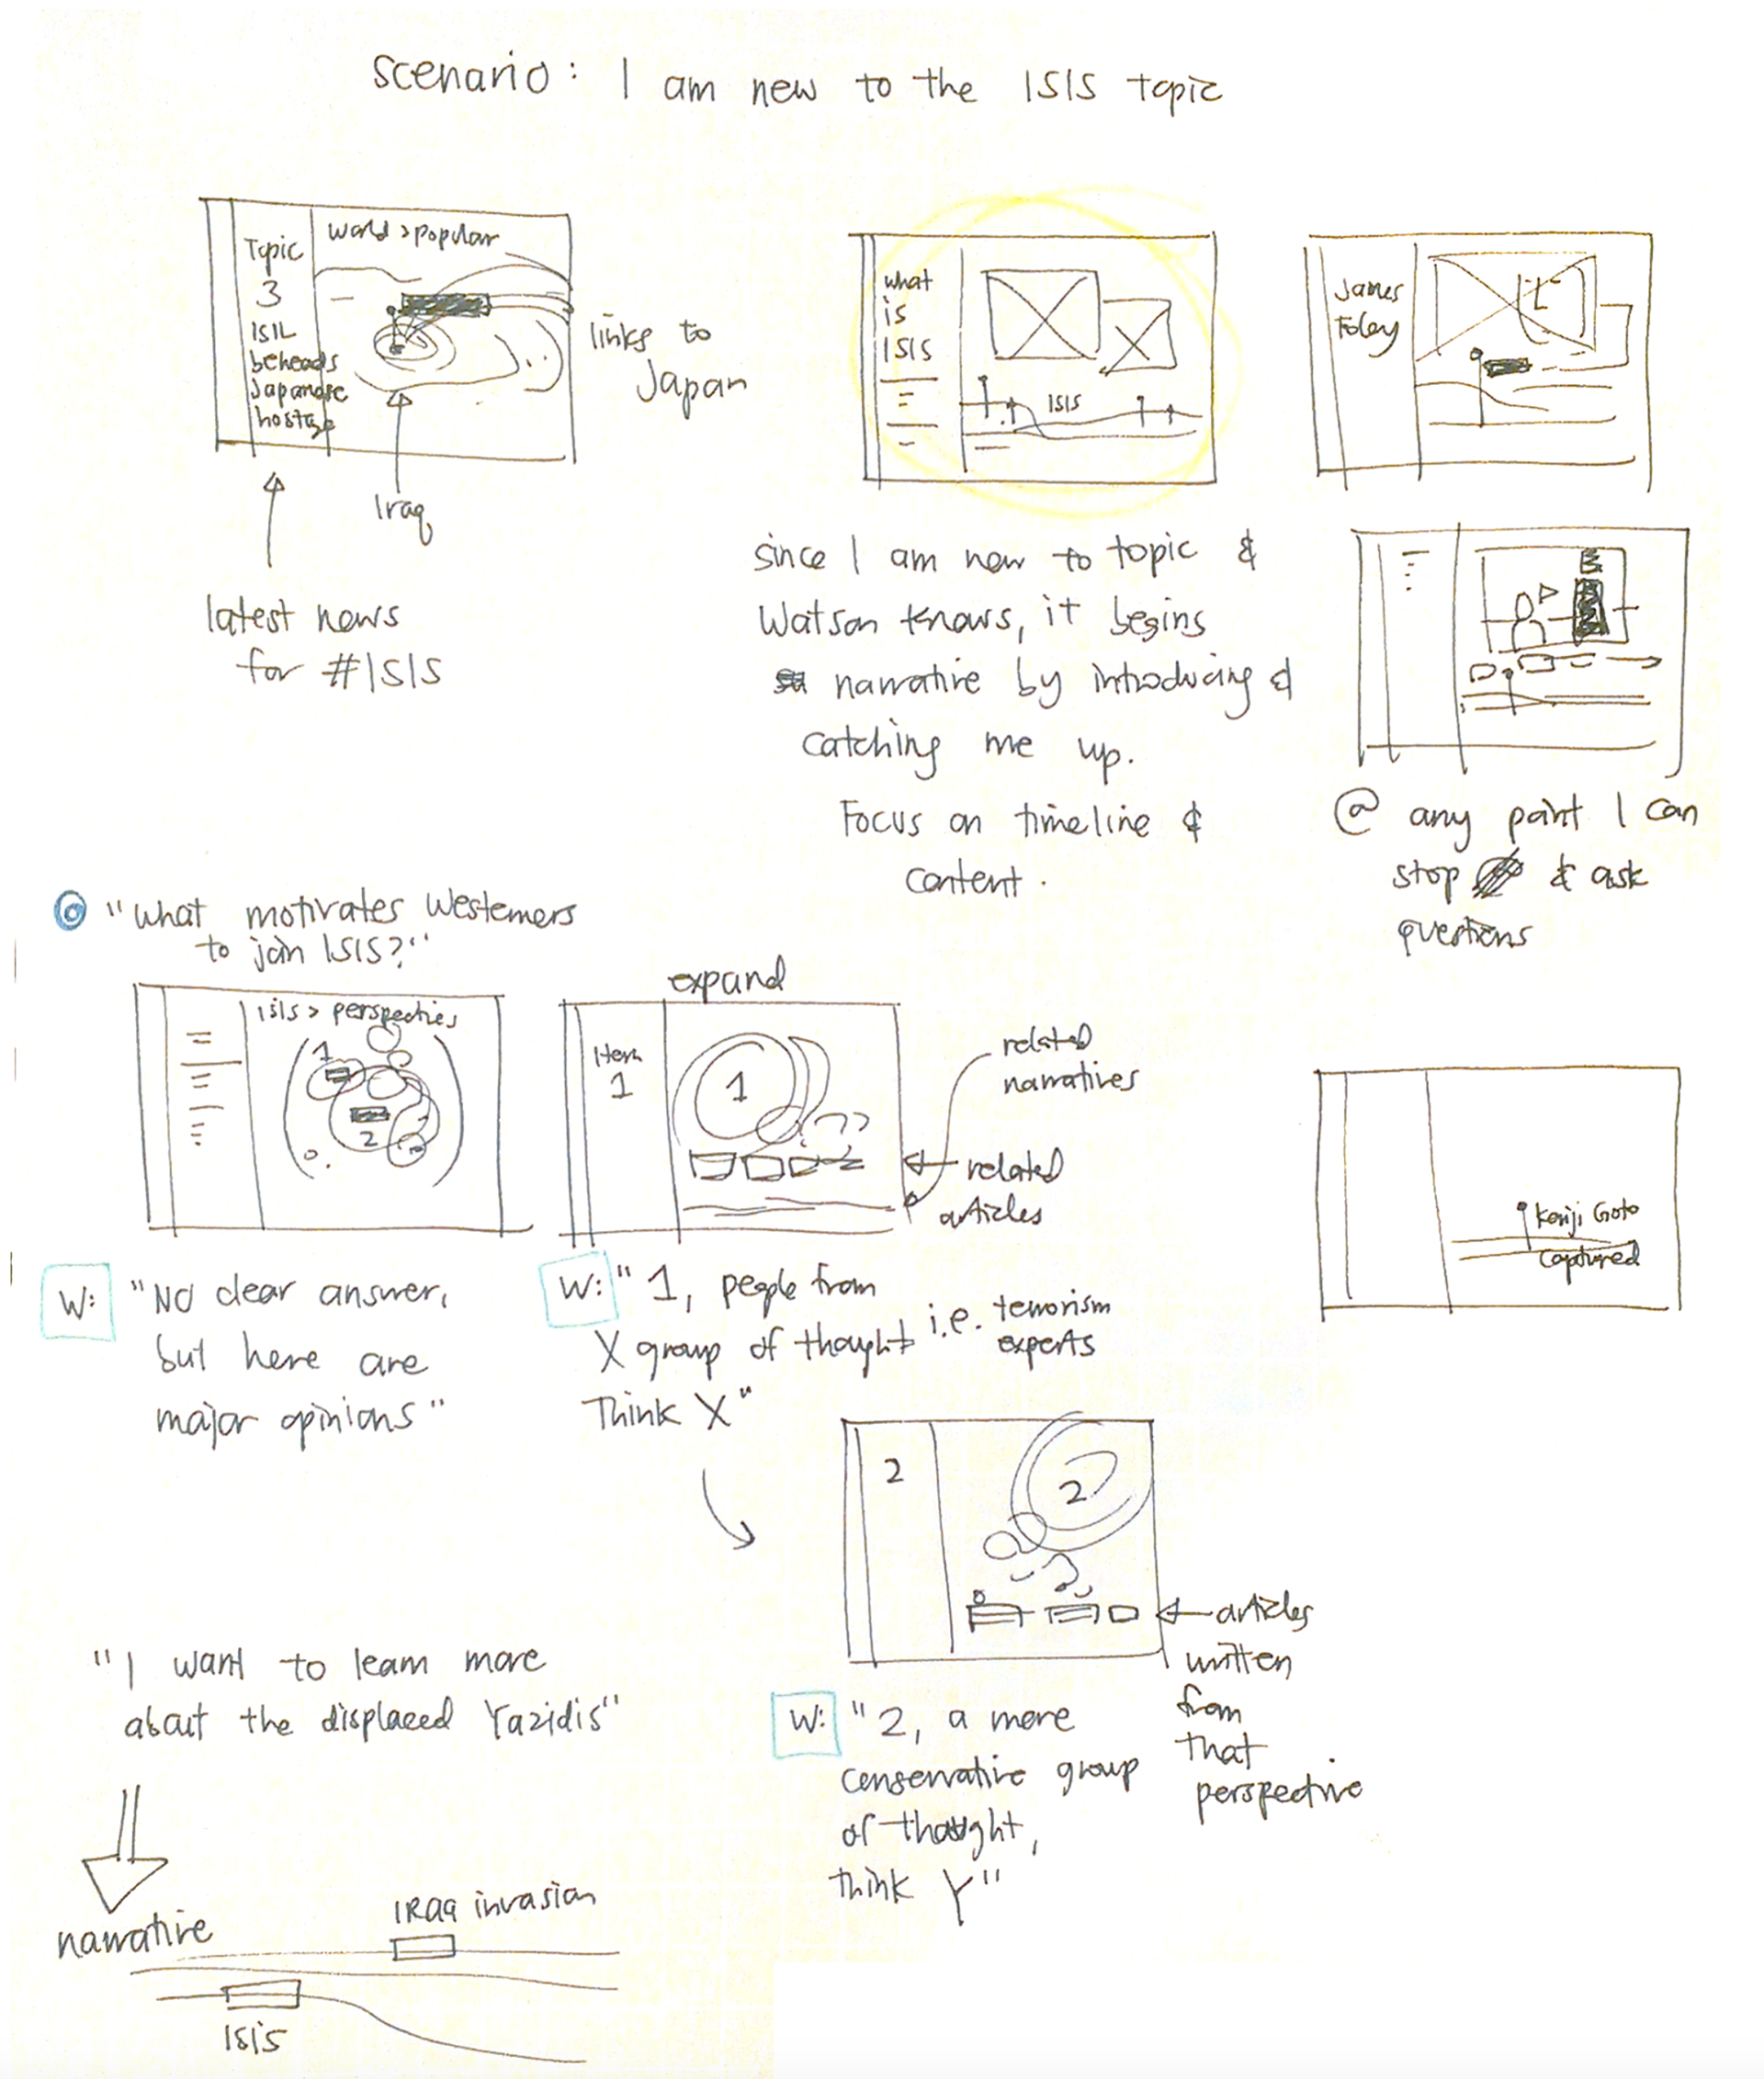 scenario: I am new to the ISIS topic
World > popular
Topic
3
ISIL
beheads
Japanese
hostage
links to
Japan
Iraq
latest news
for #ISIS
what
is
ISIS
ISIS
since I am new to topic &
Watson knows, it begins
narrative by introducing &
catching me up.
Focus on timeline &
content.
James
Foley
@ any point I can
stop & ask
questions
"what motivates Westerners
to join ISIS?"
ISIS > perspectives
1
2
W: "No clear answer,
but here are
major opinions"
expand
Item
1
1
related
narratives
related
articles
W: "1, people from
X group of thought i.e. terrorism
experts
Think X"
Kenji Goto
captured
2
2
articles
written
from
that
perspective
W: "2, a more
conservative group
of thought,
think Y"
"I want to learn more
about the displaced Yazidis"
narrative
IRAQ invasion
ISIS